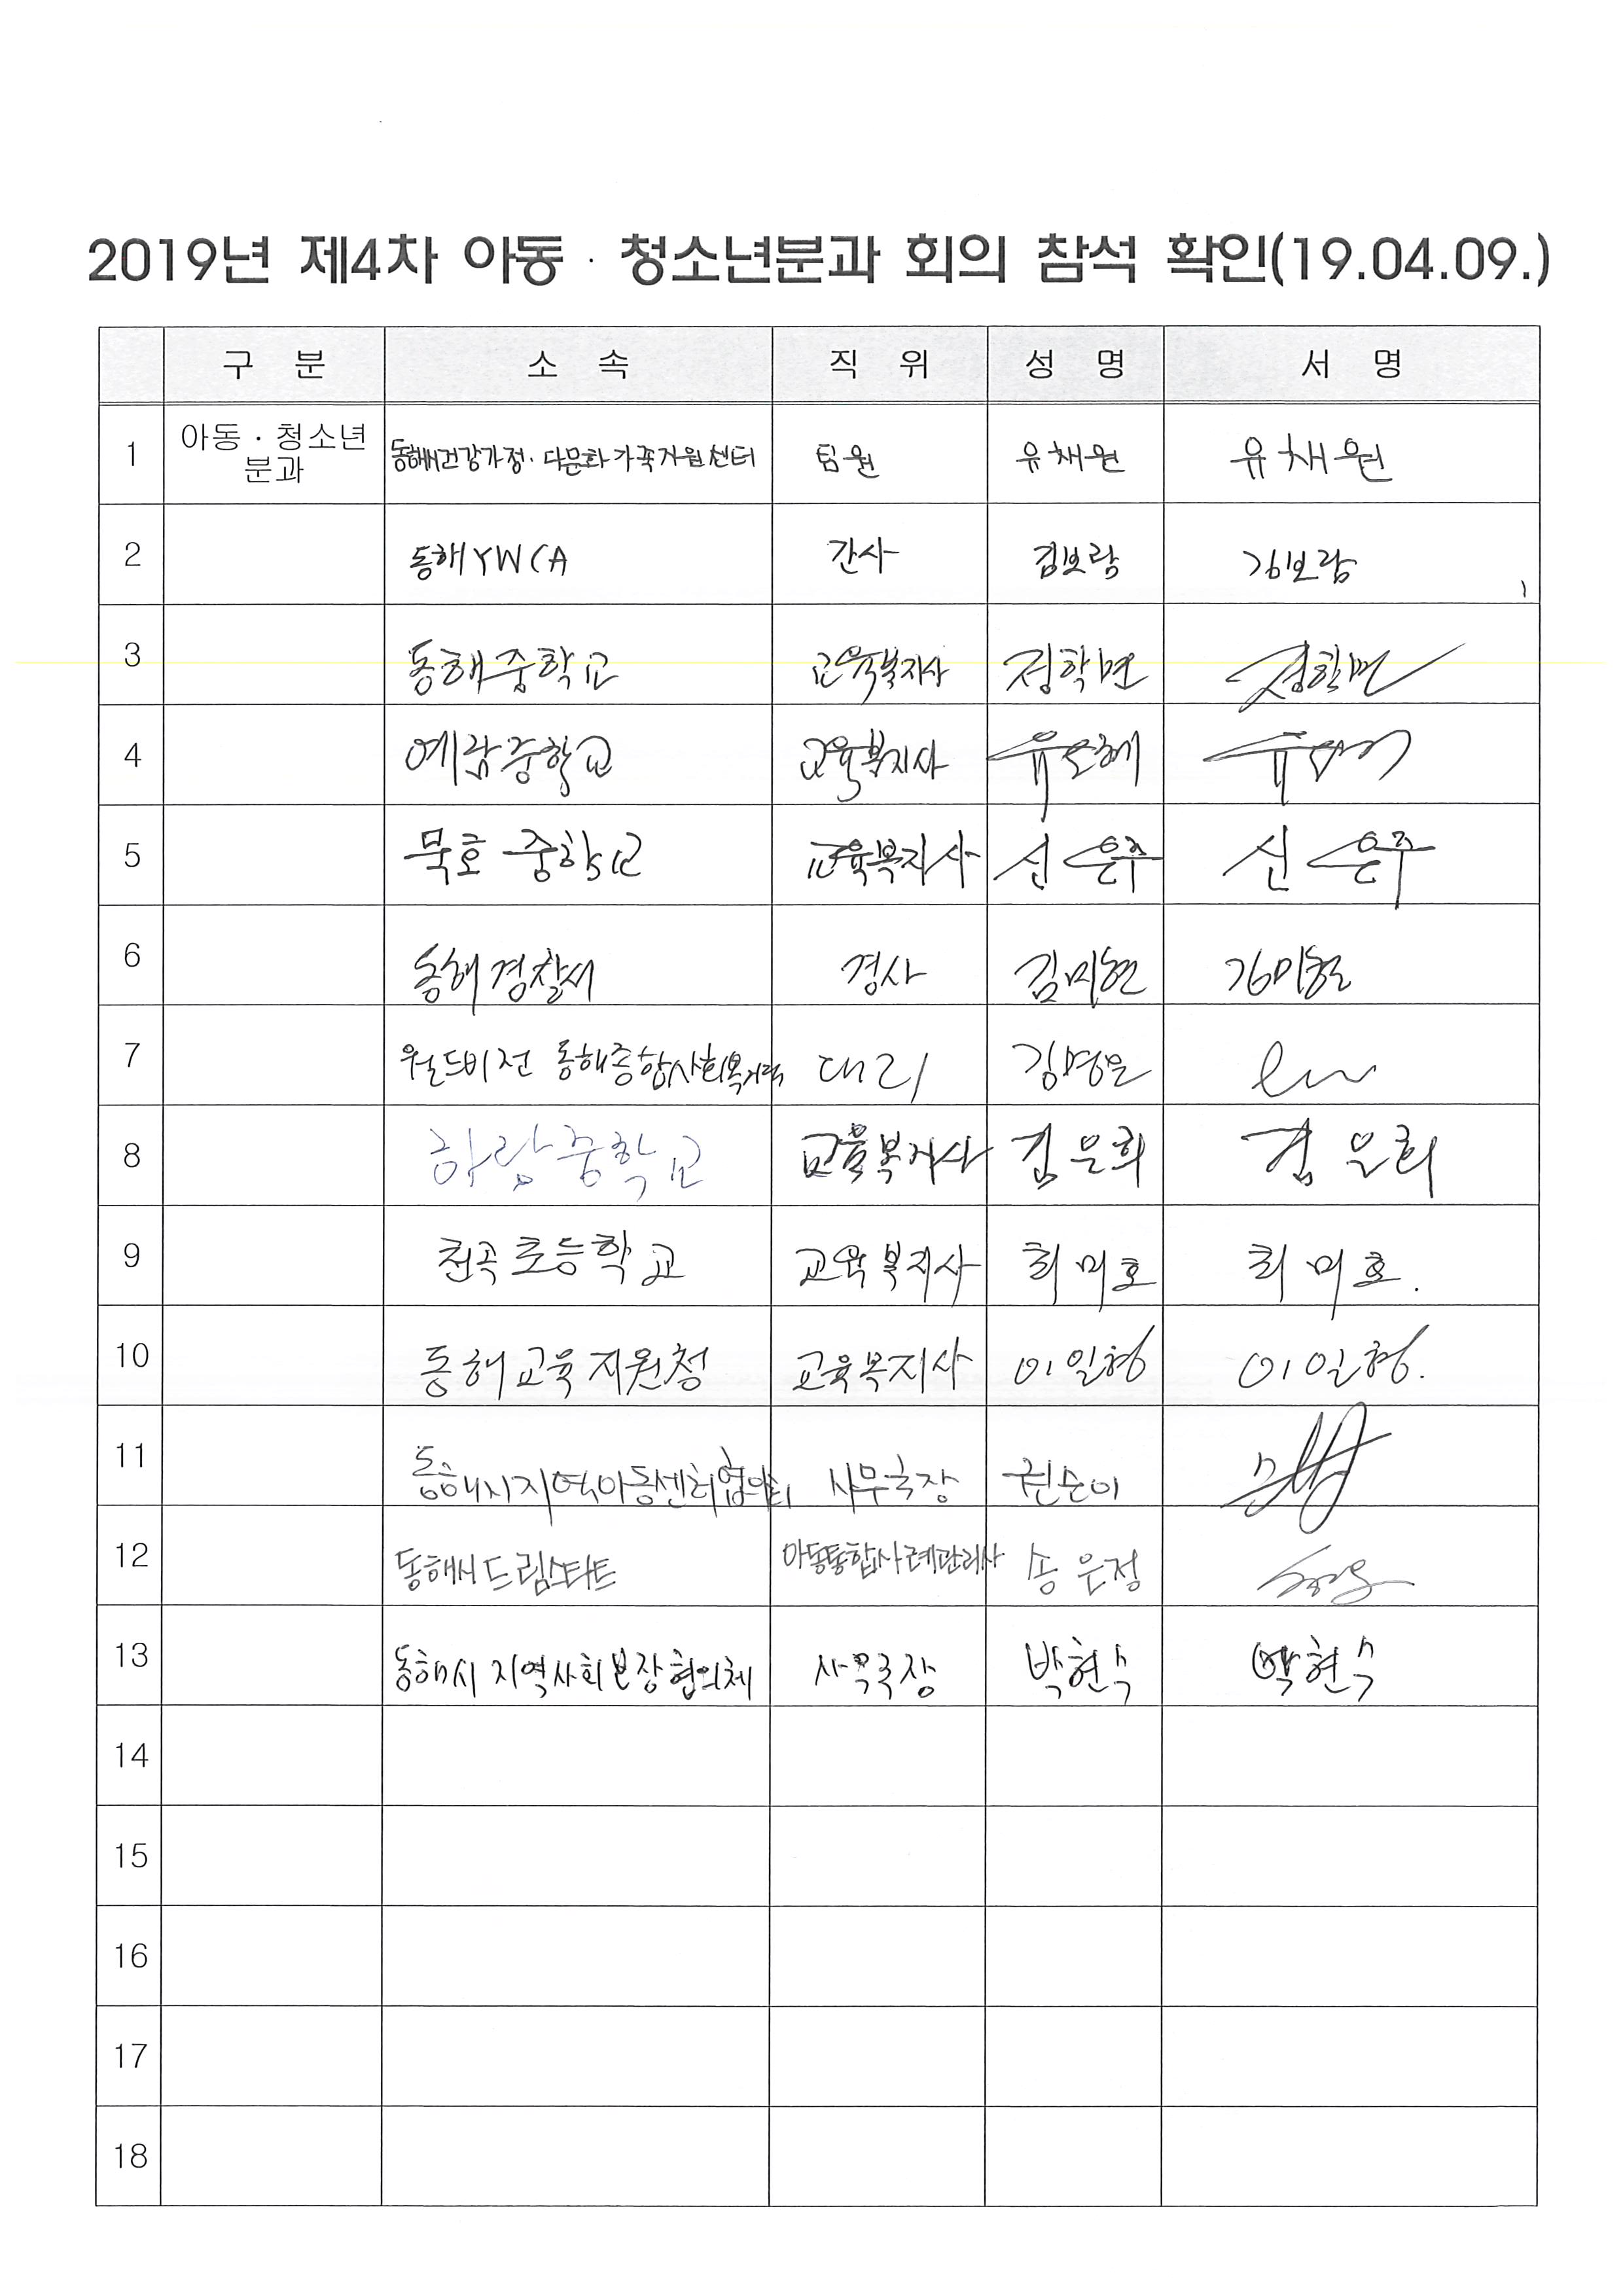 2019년 제4차 아동 · 청소년분과 회의 참석 확인(19.04.09.)
구 분 소 속 직 위 성 명 서 명
1 아동 · 청소년 분과 동해건강가정·다문화가족지원센터 팀원 유채원 유채원
2 동해YWCA 간사 김보람 김보람
3 동해중학교 교육복지사 정학면
4 예람중학교 교육복지사
5 묵호중학교 교육복지사 신은주 신은주
6 동해경찰서 경사 김미현 김미현
7 월드비전 동해종합사회복지관 대리 김명은
8 하랑중학교 교육복지사 김은희 김은희
9 천곡초등학교 교육복지사 최미호 최미호.
10 동해교육지원청 교육복지사 이일형 이일형.
11 동해시지역아동센터협의회 사무국장 권순이
12 동해시드림스타트 아동통합사례관리사 송은정
13 동해시 지역사회보장협의체 사무국장 박현수 박현수
14
15
16
17
18